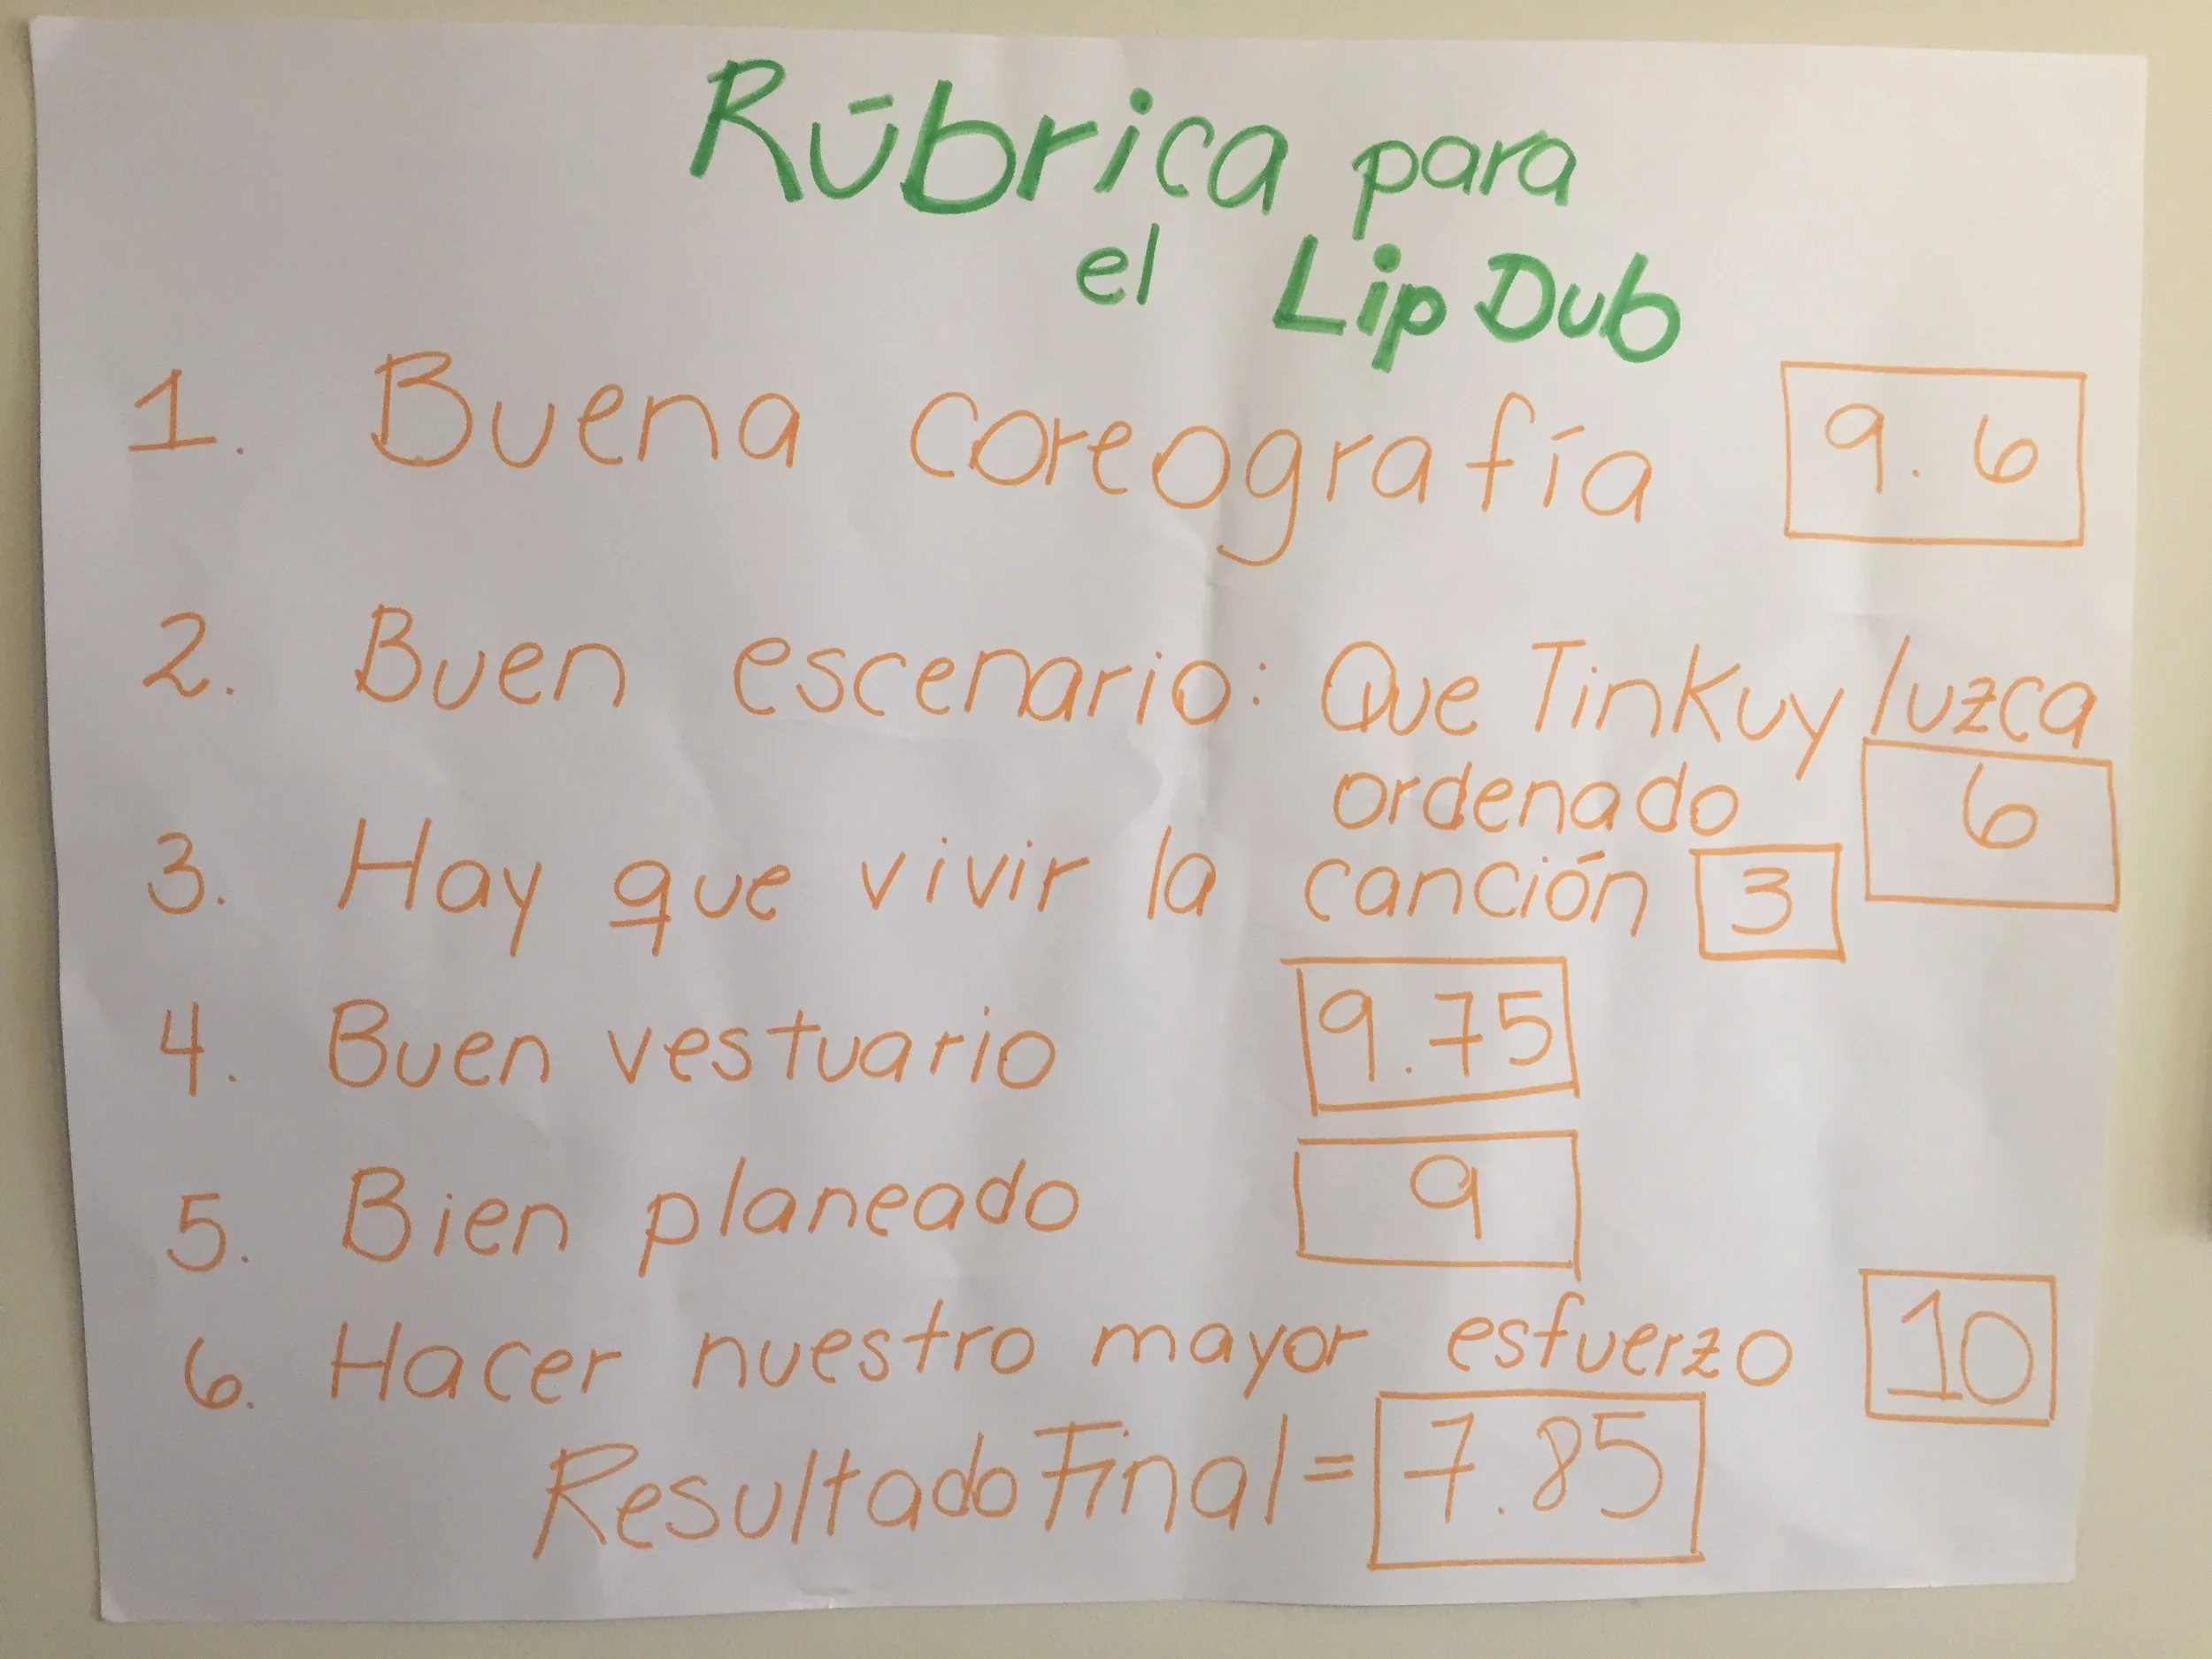 Rúbrica para
el Lip Dub
1. Buena coreografía 9.6
2. Buen escenario: Que Tinkuy luzca
ordenado 6
3. Hay que vivir la canción 3
4. Buen vestuario 9.75
5. Bien planeado 9
6. Hacer nuestro mayor esfuerzo 10
Resultado Final = 7.85